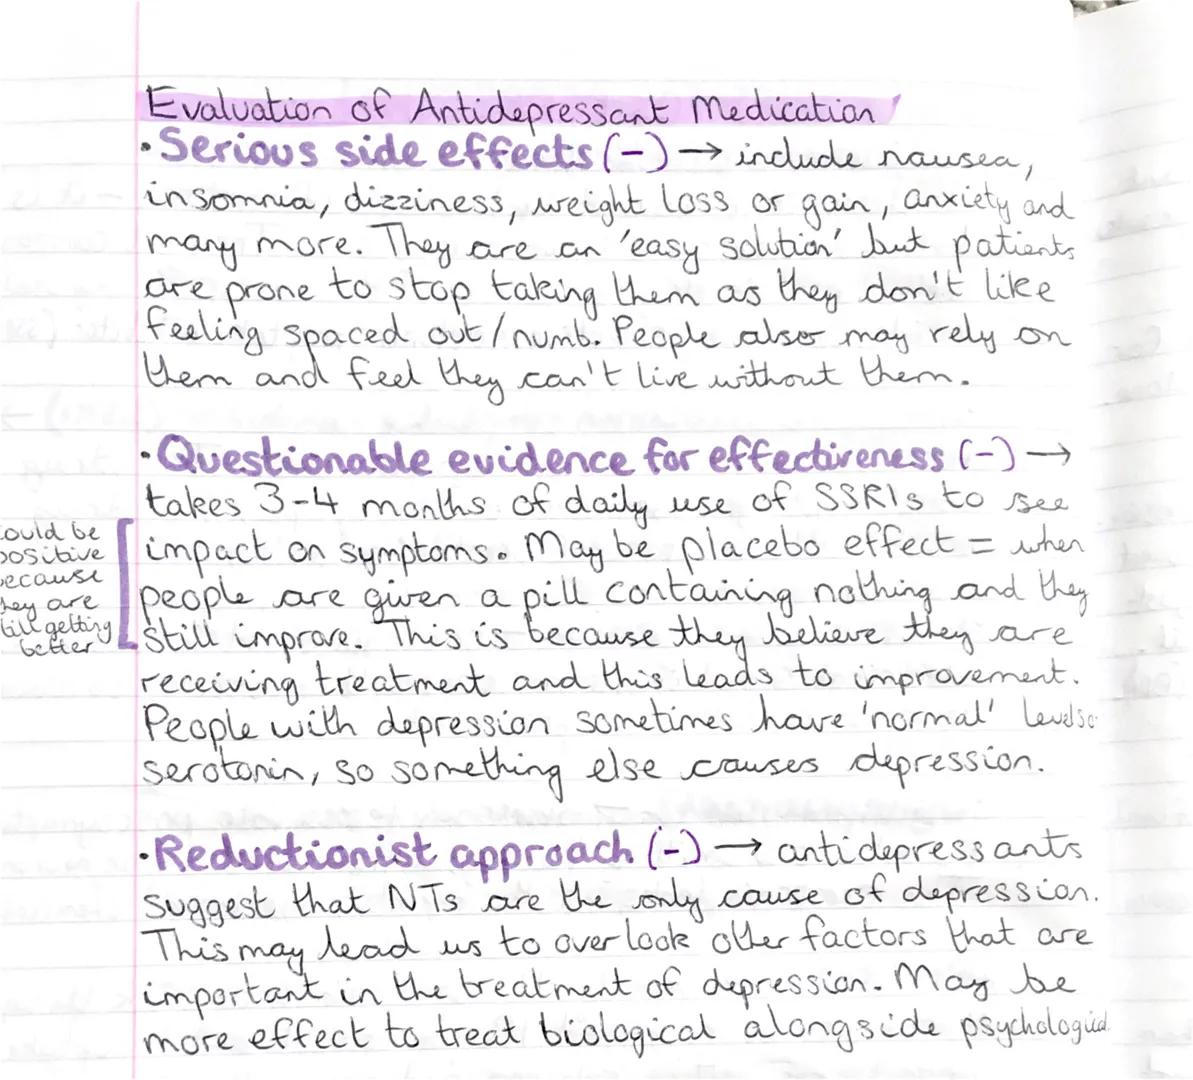 Evaluation of Antidepressant Medication
• Serious side effects (-) → include nausea,
insomnia, dizziness, weight loss or gain, anxiety and
many more. They are an 'easy solution' but patients
are prone to stop taking them as they don't like
feeling spaced out/numb. People also may rely on
them and feel they can't live without them.
• Questionable evidence for effectiveness (-) →
takes 3-4 months of daily use of SSRIs to see
impact on symptoms. May be placebo effect = when
people are given a pill containing nothing and they
still improve. This is because they believe they are
receiving treatment and this leads to improvement.
People with depression sometimes have 'normal' levels
serotonin, so something else causes depression.
ould be
positive
ecause
hey are
till getting
better
• Reductionist approach (-) → antidepressants
suggest that NTs are the only cause of depression.
This may lead us to overlook other factors that are
important in the treatment of depression. May be
more effect to treat biological alongside psychological